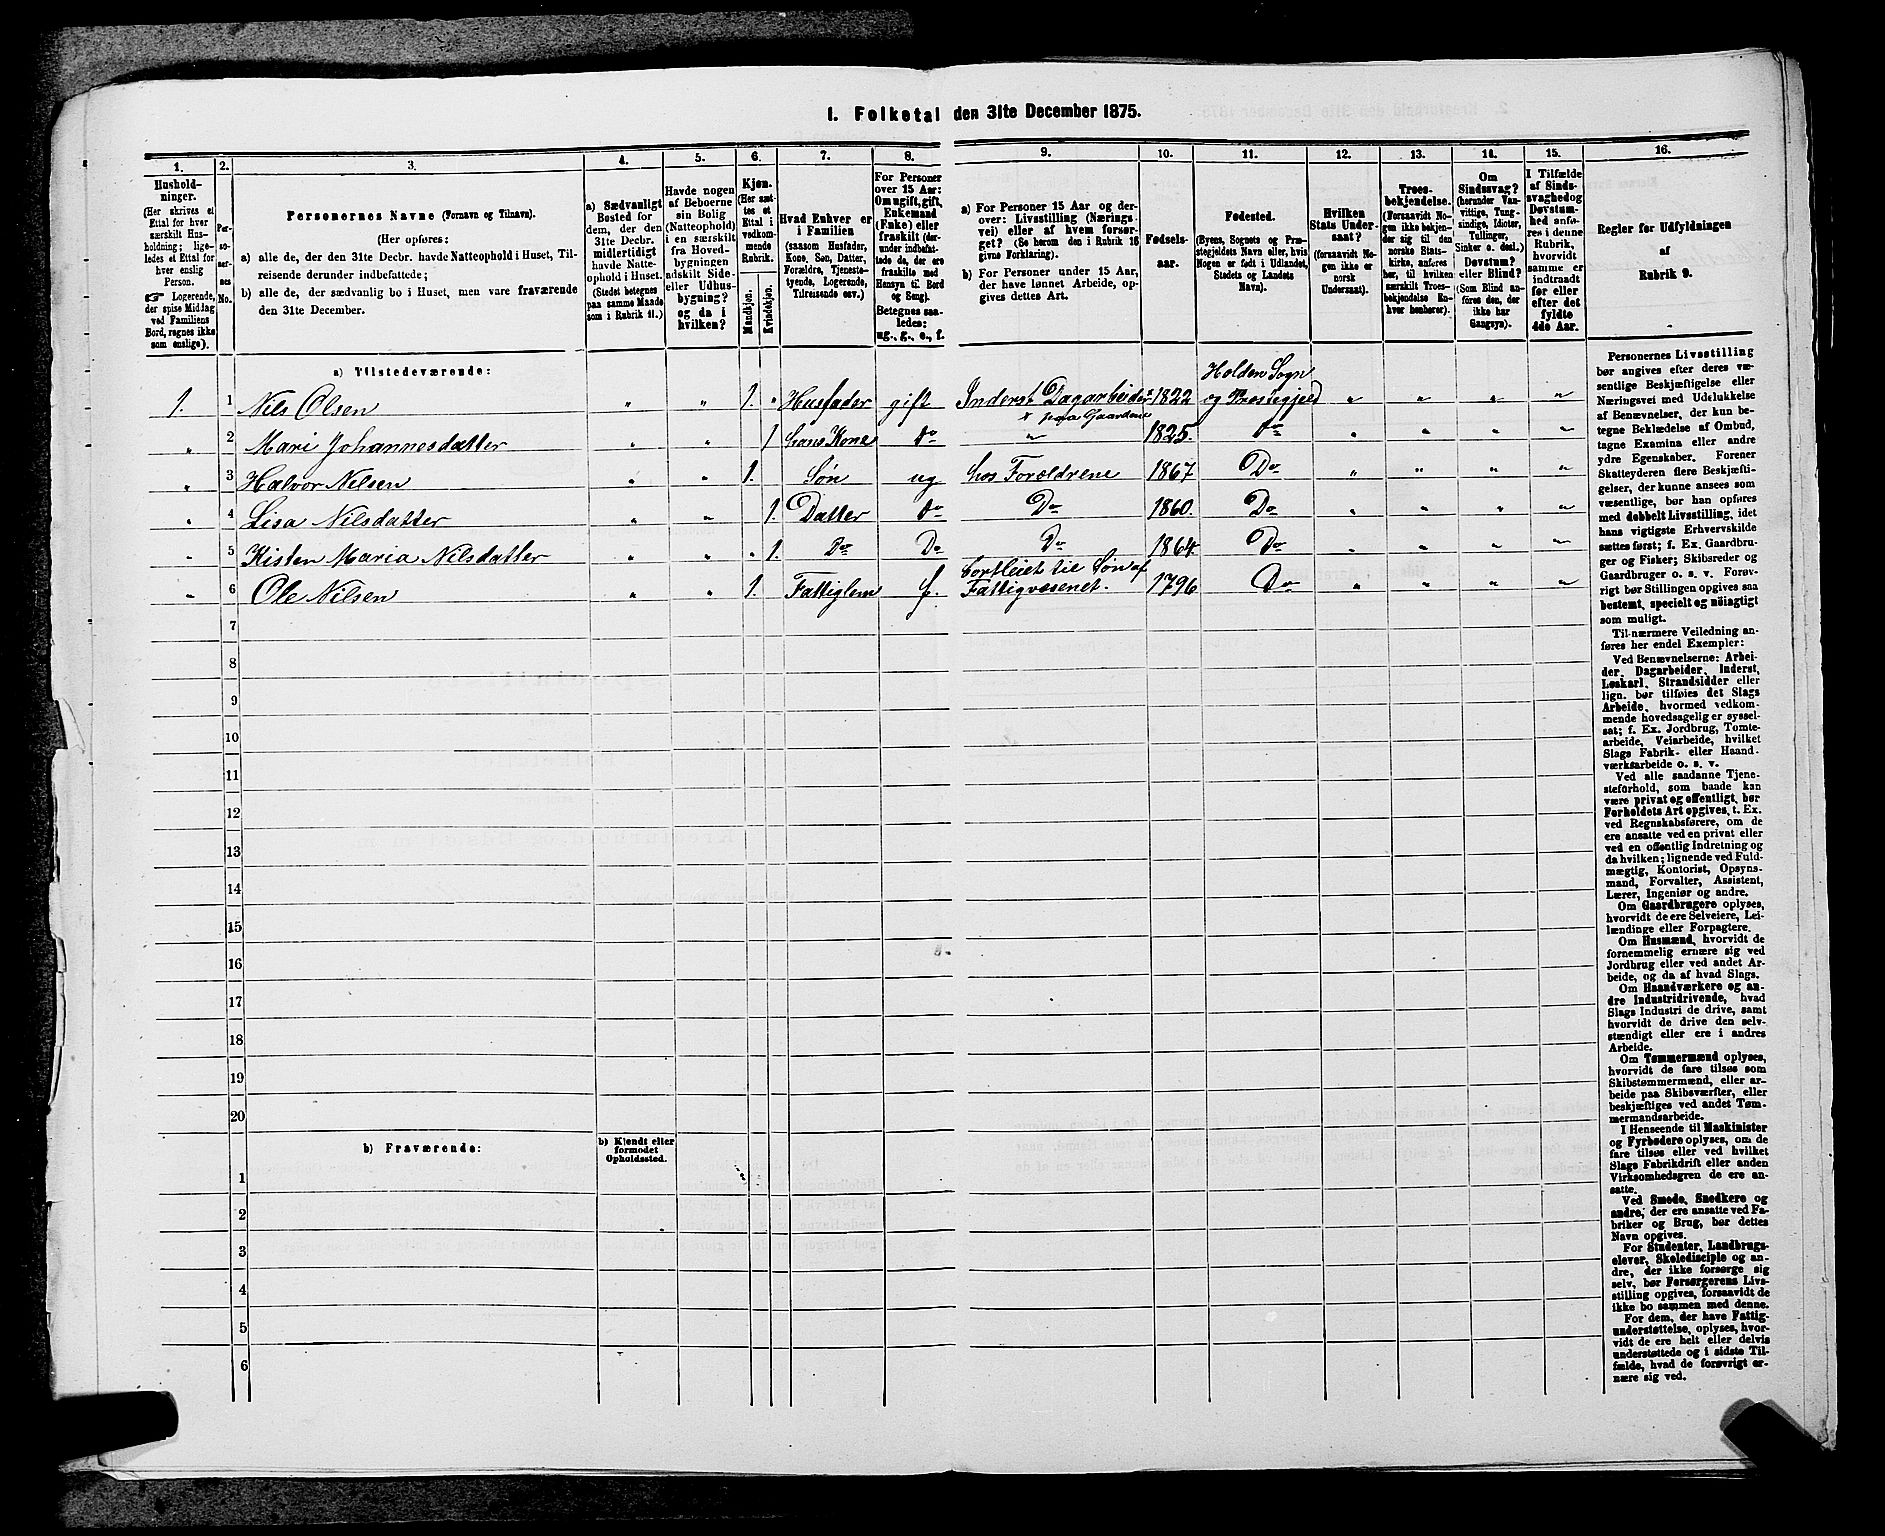 I. Folketal den 31te December 1875.
1. 2. 3. 4. 5. 6. 7. 8. 9. 10. 11. 12. 13. 14. 15. 16.
Hushold-
ninger.
(Her skrives et
Ettal for hver
særskilt Hus-
holdning; lige-
ledes et Ettal for
hver enslig
Person.
☞ Logerende,
der spise Middag
ved Familiens
Bord, regnes ikke
som enslige).
Per-
so-
ner-
nes
No.
Personernes Navne (Fornavn og Tilnavn).
(Her opføres:
a) alle de, der den 31te Decbr. havde Natteophold i Huset, Til-
reisende derunder indbefattede;
b) alle de, der sædvanlig bo i Huset, men vare fraværende
den 31te December.
a) Sædvanligt
Bosted for
dem, der den
31te Decbr.
midlertidigt
havde Natte-
ophold i Huset.
(Stedet betegnes
paa samme Maade
som i Rubrik 11.)
Havde nogen
af Beboerne
sin Bolig
(Natteophold)
i en særskilt
fra Hoved-
bygningen
adskilt Side-
eller Udhus-
bygning?
og da i
hvilken?
Kjøn.
(Her sæt-
tes et
Ettal i
vedkom-
mende
Rubrik.
Mandkjøn.
Kvindekjøn.
Hvad Enhver er
i Familien
(saasom Husfader,
Kone, Søn, Datter,
Forældre, Tjeneste-
tyende, Logerende,
Tilreisende osv.)
For Personer
over 15 Aar:
Om ugift, gift,
Enkemand
(Enke) eller
fraskilt (der-
under indbefat-
tede de, der ere
fraskilte med
Hensyn til Bord
og Seng).
Betegnes saa-
ledes:
ug., g., e., f.
a) For Personer 15 Aar og der-
over: Livsstilling (Nærings-
vei) eller af hvem forsør-
get? (Se herom den i Rubrik 16
givne Forklaring).
b) For Personer under 15 Aar,
der have lønnet Arbeide, op-
gives dettes Art.
Fødsels-
aar.
Fødested.
(Byens, Sognets og Præ-
stegjeldets Navn eller, hvis
Nogen er født i Udlandet,
Stedets og Landets
Navn).
Hvilken
Stats Under-
saat?
(forsaavidt No-
gen ikke er
norsk
Undersaat).
Troes-
bekjendelse.
(Forsaavidt No-
gen ikke bekjen-
der sig til den
norske Stats-
kirke, anføres
her, til hvilken
særskilt Troes-
bekjendelse En-
hver henhører).
Om
Sindssvag?
(herunder Van-
vittige, Tung-
sindige, Idioter,
Tullinger,
Sinker o. desl.)
Døvstum?
eller Blind?
(Som Blind an-
føres den, der
ikke har
Gangsyn).
I Tilfælde
af Sinds-
svaghed og
Døvstum-
hed anfø-
res i denne
Rubrik,
hvorvidt
samme er
indtraadt
før eller
efter det
fyldte
4de Aar.
Regler for Udfyldningen
af
Rubrik 9.
a) Tilstedeværende:
Holden Sogn
1. 1 Nils Olsen „ „ 1. „ Husfader gift Inderst Dagarbeider 1822 og Præstegjeld „ „ „ „
x paa Gaardene
„ 2 Mari Johannesdatter „ „ 1 hans Kone do „ 1825. do „ „ „ „
„ 3 Halvor Nilsen „ „ 1. Søn ug hos Forældrene 1867 Do „ „ „ „
„ 4 Lisa Nilsdatter „ „ 1. Datter do Do 1860. Do „ „ „ „
„ 5 Kisten Maria Nilsdatter „ „ „ 1. Do Do Do 1864 Do „ „ „ „
bortleiet til Søn af
„ 6 Ole Nilsen „ „ 1. Fattiglem f. Fattigvæsenet. 1796 Do „ „ „ „
7
8
9
10
11
12
13
14
15
16
17
18
19
20
b) Fraværende:
b) Kjendt eller
formodet
Opholdssted.
1
2
3
4
5
6
Personernes Livsstilling
bør angives efter deres væ-
sentlige Beskjæftigelse eller
Næringsvei med Udelukkelse
af Benævnelser, der kun be-
tegne Beklædelse af Ombud,
tagne Examina eller andre
ydre Egenskaber. Forener
Skatteyderen flere Beskjæfti-
gelser, der kunne ansees som
væsentlige, bør han opføres
med dobbelt Livsstilling, idet
hans vigtigste Erhvervskilde
sættes først; f. Ex. Gaardbru-
ger og Fisker; Skibsreder og
Gaardbruger o. s. v. Forøv-
rigt bør Stillingen opgives saa
bestemt, specielt og nøiagtigt
som muligt.
Til nærmere Veiledning an-
føres her endel Exempler:
Ved Benævnelserne: Arbei-
der, Dagarbeider, Inderst,
Løskarl, Strandsidder eller
lign. bør tilføies det Slags
Arbeide, hvormed vedkom-
mende hovedsagelig er syssel-
sat; f. Ex. Jordbrug, Tomte-
arbeide, Veiarbeide, hvilket
Slags Fabrik- eller Haand-
værksarbeide o. s. v.
Ved alle saadanne Tjene-
steforhold, som baade kan
være privat og offentligt, bør
Forholdets Art opgives, t. Ex.
ved Regnskabsførere, om de
ere ansatte ved en privat eller
ved en offentlig Indretning og
da hvilken; lignende ved Fuld-
mægtig, Kontorist, Opsyns-
mand, Forvalter, Assistent,
Lærer, Ingeniør og andre.
Om Gaardbrugere oplyses,
hvorvidt de ere Selveiere, Lei-
lændinge eller Forpagtere.
Om Husmænd, hvorvidt de
fornemmelig ernære sig ved
Jordbrug eller ved andet Ar-
beide, og da af hvad Slags.
Om Haandværkere og an-
dre Industridrivende, hvad
Slags Industri de drive, samt
hvorvidt de drive den selv-
stændigt eller ere i andres
Arbeide.
Om Tømmermænd oplyses,
hvorvidt de fare tilsøs som
Skibstømmermænd, eller ar-
beide paa Skibsværfter, eller
beskjæftiges ved andet Tøm-
mermandsarbeide.
I Henseende til Maskinister
og Fyrbødere oplyses, om de
fare tilsøs eller ved hvilket
Slags Fabrikdrift eller anden
Virksomhedsgren de ere an-
satte.
Ved Smede, Snedkere og
andre, der ere ansatte ved Fa-
briker og Brug, bør dettes
Navn opgives.
For Studenter, Landbrugs-
elever, Skoledisciple og an-
dre, der ikke forsørge sig
selv, bør Forsørgerens Livs-
stilling opgives, forsaavidt de
ikke bo sammen med denne.
For dem, der have Fattig-
understøttelse, oplyses, hvor-
vidt de ere helt eller delvis
understøttede og i sidste Til-
fælde, hvad de forøvrigt er-
nære sig ved.